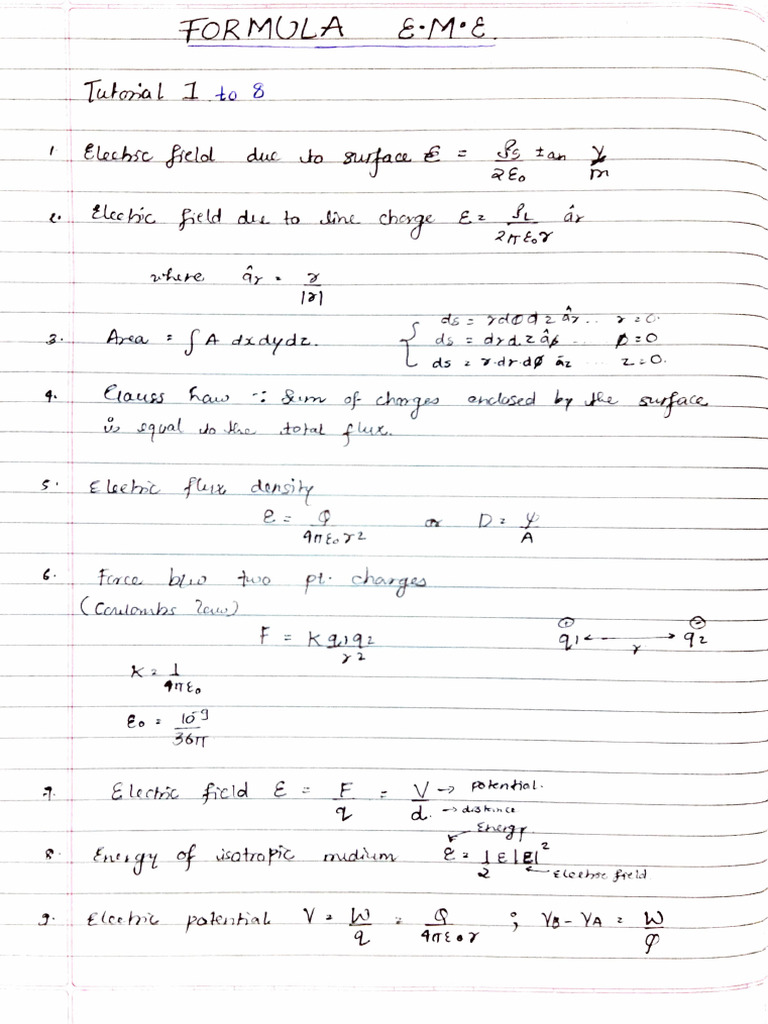 FORMULA E.M.E.
Tutorial 1 to 8
1. Electric field due to surface E = ρs/2ε0 ± an V/m
2. Electric field due to line charge E = ρL/2πε0r âr
where âr = r/|r|
3. Area = ∫ A dxdydz. { ds = rdϕdz âr .. r = 0.
ds = drdz âϕ ... ϕ = 0
ds = r.dr.dϕ âz ... z = 0.
4. Gauss Law :- Sum of charges enclosed by the surface
is equal to the total flux.
5. Electric flux density
E = Q/4πε0r2 or D = ψ/A
6. Force b/w two pt. charges
(Coulombs law)
F = K q1q2/r2 q1 ← r → q2
K = 1/4πε0
ε0 = 10-9/36π
7. Electric field E = F/q = V/d. → potential.
→ distance
Energy
8. Energy of isotropic midium E = 1/2 ε|E|2
Electric field
9. Electric potential V = W/q = Q/4πε0r ; VB - VA = W/φ